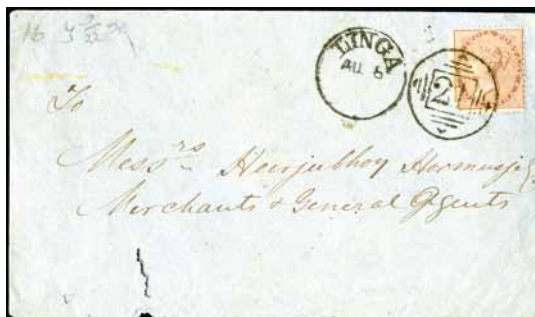 LINGA
AU 6
2
To
Messrs Heerjeebhoy Hormusjee
Merchants & General Agents